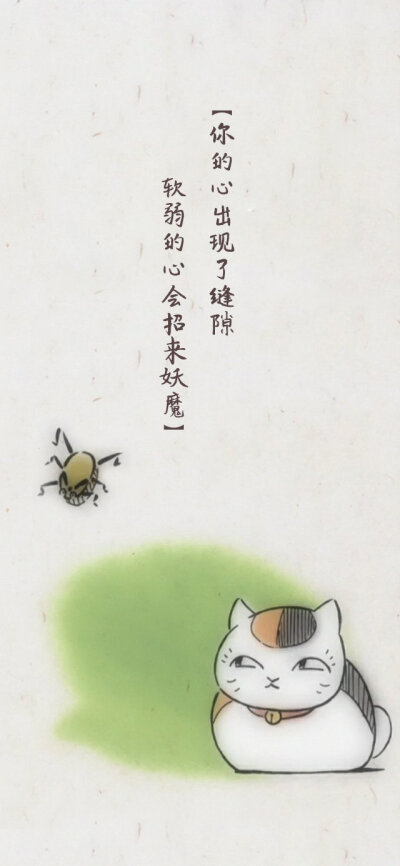 【你的心出现了缝隙
软弱的心会招来妖魔】